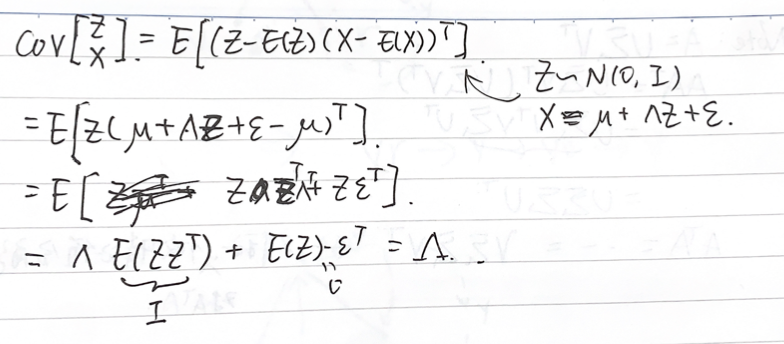 Cov[Z X] = E[(Z-E(Z)(X-E(X))ᵀ]
Z~N(0, I)
X = μ + ΛZ + ε.
= E[Z(μ + ΛZ + ε - μ)ᵀ].
= E[ ZZᵀΛᵀ + Zεᵀ].
= Λ E(ZZᵀ) + E(Z)·εᵀ = Λ.
I
0